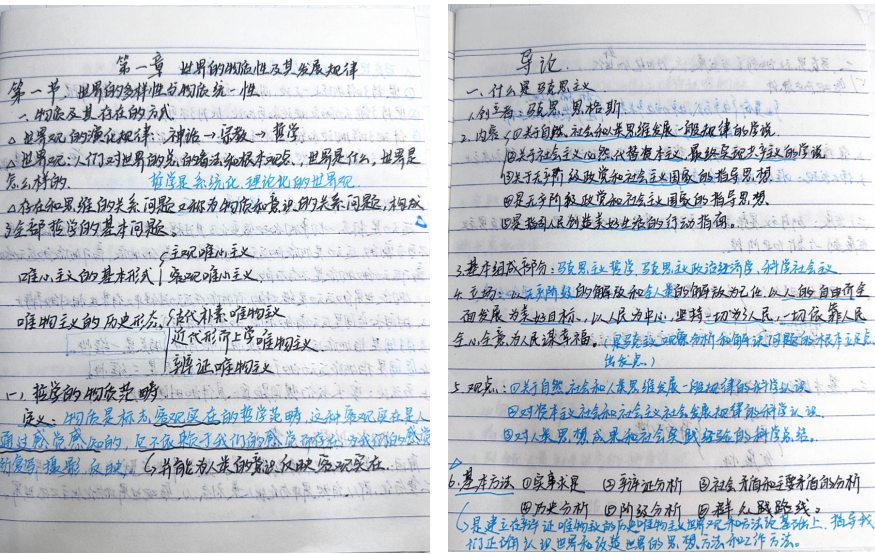 第一章 世界的物质性及其发展规律
第一节 世界的多样性与物质统一性
一.物质及其存在的方式
△世界观的演化规律：神话→宗教→哲学
△世界观：人们对世界的总的看法和根本观点、世界是什么，世界是
怎么样的. 哲学是系统化、理论化的世界观.
△存在和思维的关系问题又称为物质和意识的关系问题，构成
了全部哲学的基本问题。
唯心主义的基本形式 主观唯心主义
客观唯心主义.
唯物主义的历史形态 古代朴素唯物主义
近代形而上学唯物主义.
辩证唯物主义
一、哲学的物质范畴
定义：物质是标志客观实在的哲学范畴，这种客观实在是人
通过感觉感知的，它不依赖于我们的感觉而存在，为我们的感觉
所复写、摄影、反映。 并能为人类的意识反映客观实在.
导论.
一、什么是马克思主义.
1.创立者：马克思 恩格斯
2.内容 ①关于自然、社会和人类思维发展一般规律的学说
②关于社会主义必然代替资本主义、最终实现共产主义的学说
③关于无产阶级政党和社会主义国家的指导思想.
④是无产阶级政党和社会主义国家的指导思想.
⑤是指引人民创造美好生活的行动指南。
3.基本组成部分：马克思主义哲学 马克思主义政治经济学、科学社会主义
4.立场：以无产阶级的解放和全人类的解放为己任，以人的自由而全
面发展为美好目标、以人民为中心，坚持一切为了人民，一切依靠人民
全心全意为人民谋幸福。（是马克思主义观察分析和解决问题的根本立足点
出发点.）
5.观点：①关于自然、社会和人类思维发展一般规律的科学认识
②对资本主义社会和社会主义社会发展规律的科学认识
③对人类思想成果和社会实践经验的科学总结。
6.基本方法 ①实事求是 ②辩证分析 ③社会矛盾和主要矛盾的分析
④历史分析 ⑤阶级分析 ⑥群众路线。
是建立在辩证唯物主义的历史唯物主义世界观和方法论基础上，指导我
们正确认识世界和改造世界的思想方法和工作方法。